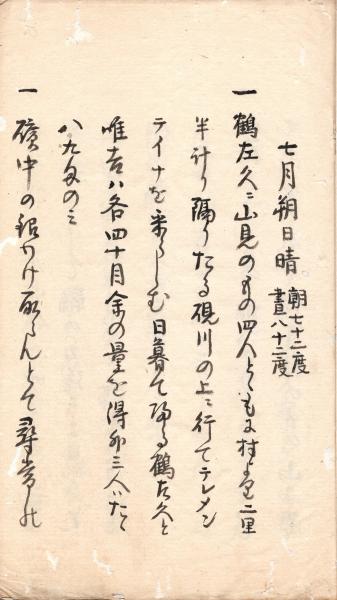 七月朔日晴 朝七十二度 晝八十二度
一 鶴左久ニ山見のもの四人とともに村より二里
半計り隔りたる硯川の上ニ行てテレメン
テイナを采らしむ日暮て帰る鶴左久と
唯吉ハ各四十目余の量を得外三人ハたゝ
八九匁のミ
一 礦中の鋁かけ取らんとて尋常の